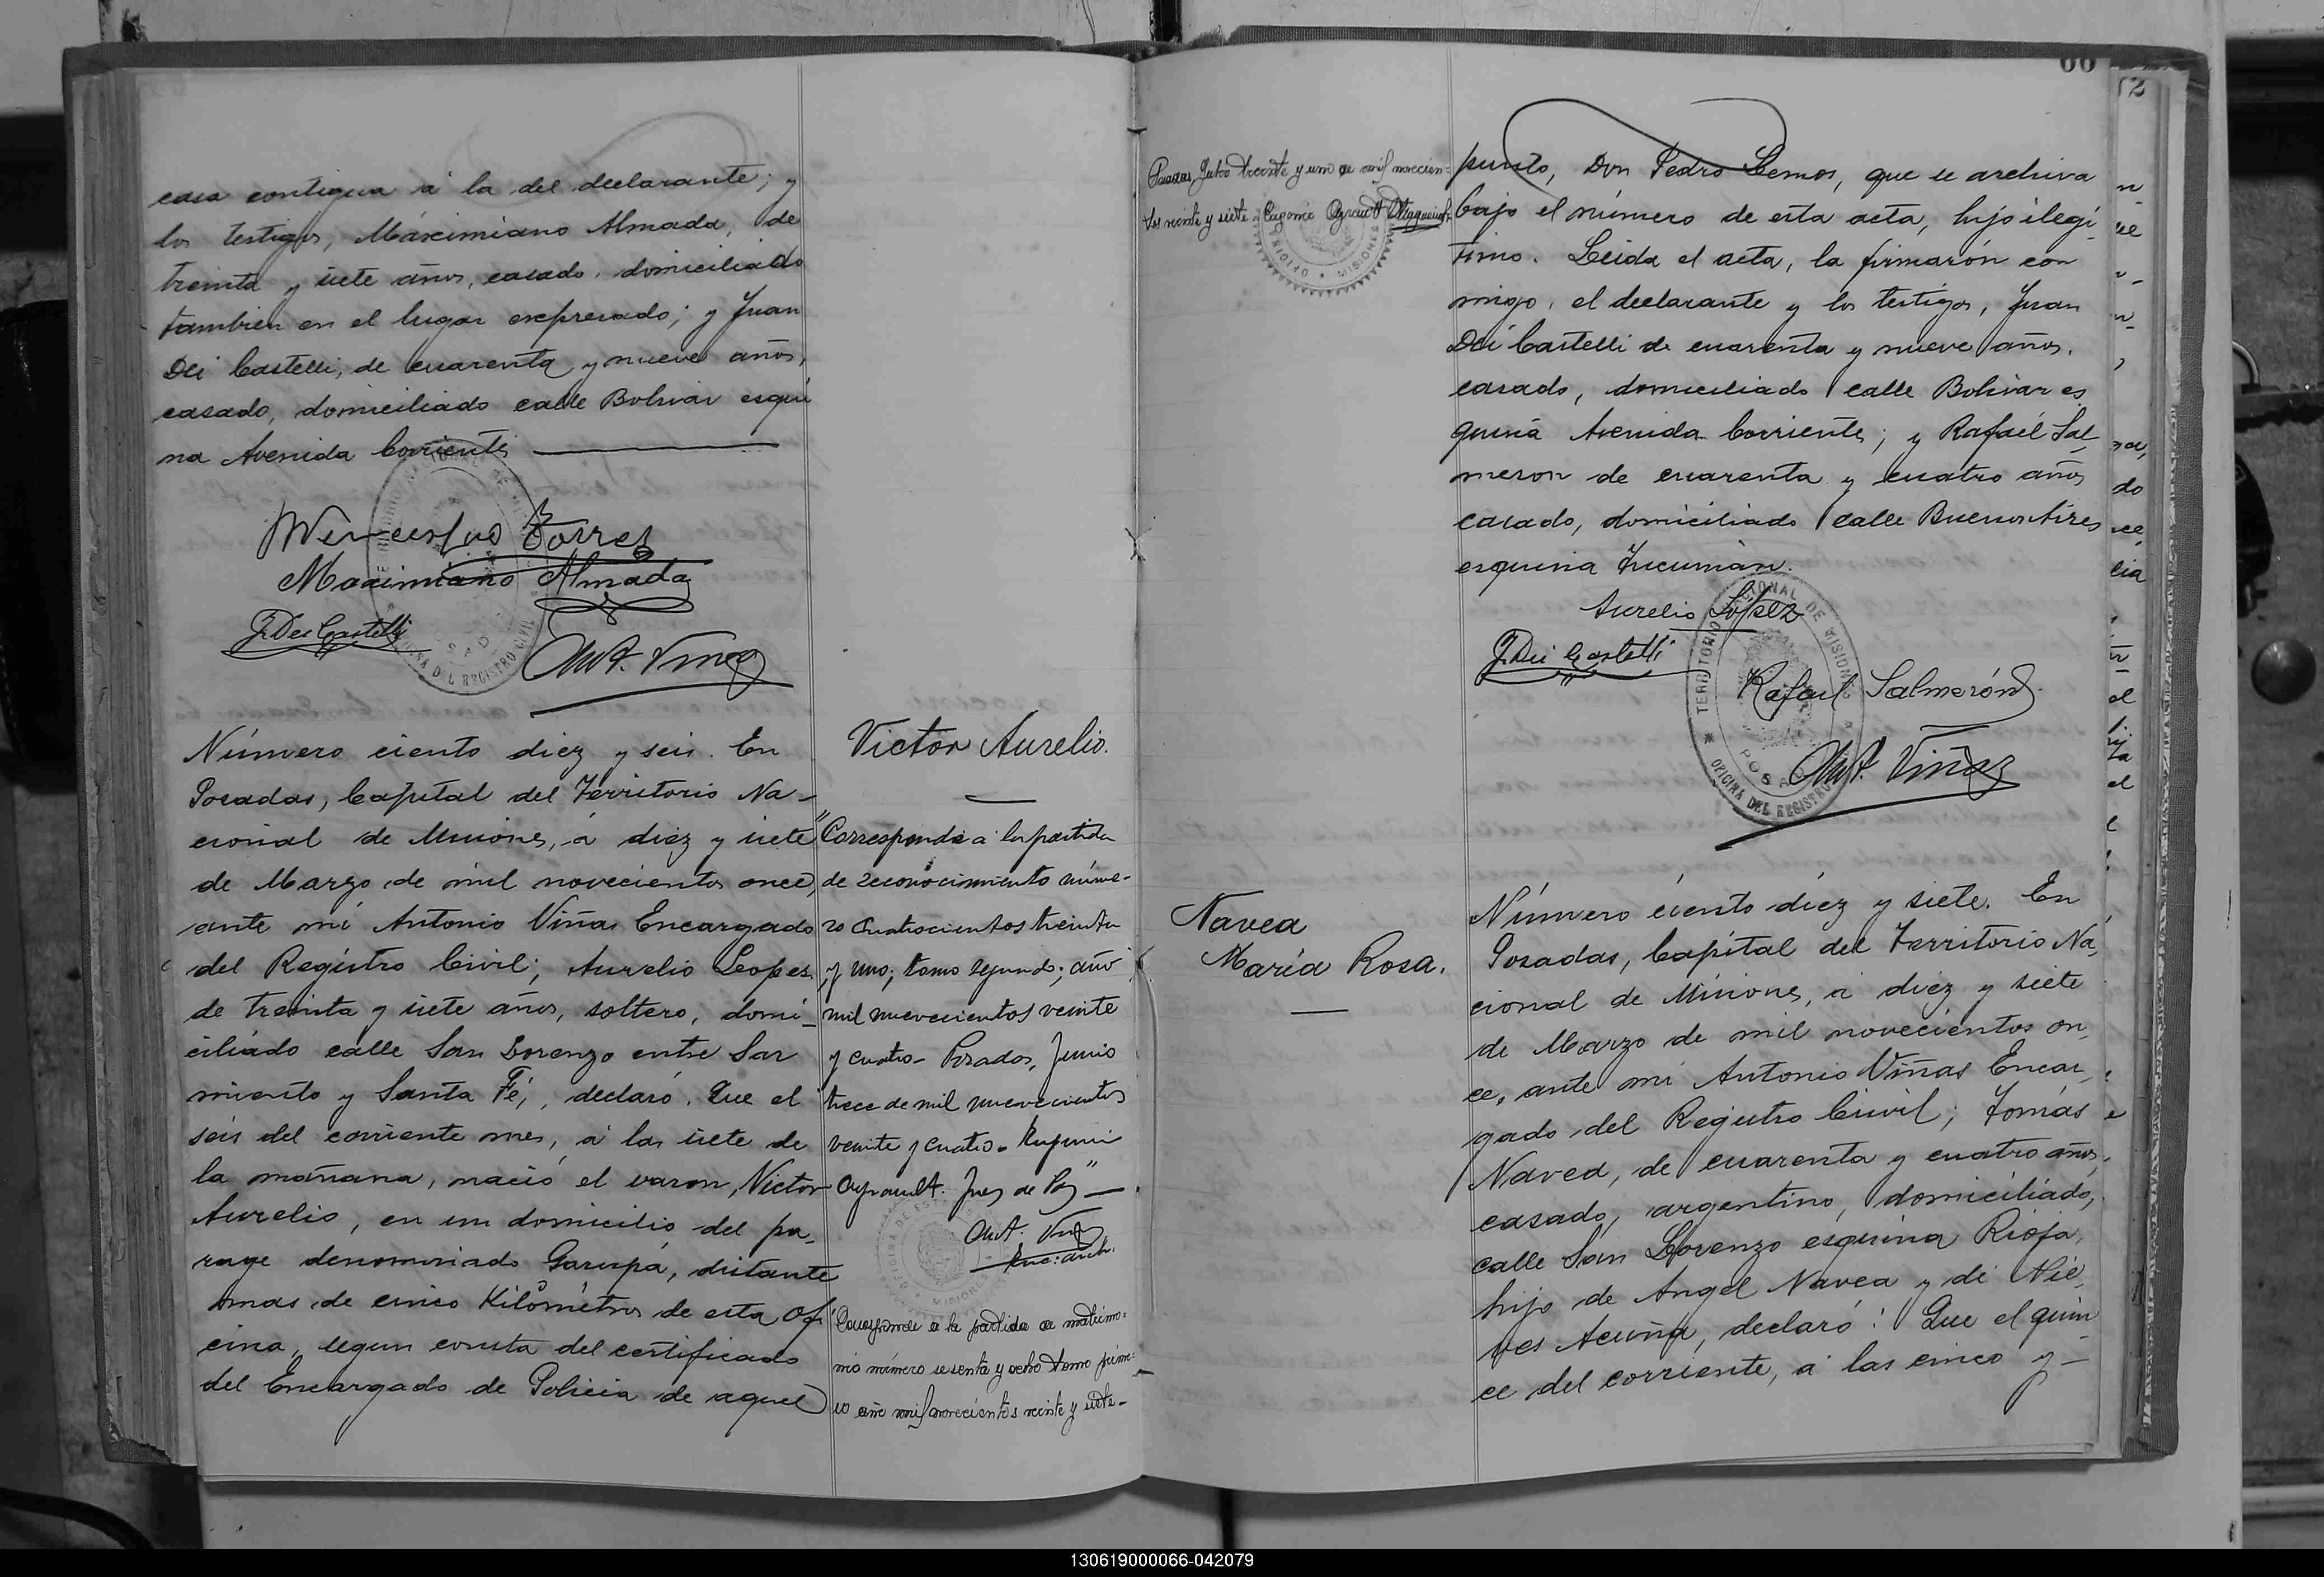 casa contigua á la del declarante; y
los testigos, Máximiano Almada, de
treinta y siete años, casado, domiciliado
tambien en el lugar expresado; y Juan
Dei Castelli, de cuarenta y nueve años,
casado, domiciliado calle Bolivar esqui
na Avenida Corrientes
Wenceslao Torres
Maximiano Almada
J. Dei Castelli
Ant. Viñas
Número ciento diez y seis. En
Posadas, Capital del Territorio Na-
cional de Misiones, á diez y siete
de Marzo de mil novecientos once,
ante mi Antonio Viñas Encargado
del Registro Civil; Aurelio Lopes
de treinta y siete años, soltero, domi-
ciliado calle San Lorenzo entre Sar
miento y Santa Fé, declaró. Que el
seis del corriente mes, á las siete de
la mañana, nació el varon, Victor
Aurelio, en un domicilio del pa-
rage denominado Garupá, distante
mas de cinco Kilómetros de esta Ofi
cina, segun consta del certificado
del Encargado de Policia de aquel
Victor Aurelio.
"Corresponde a la partida
de reconocimiento núme-
ro cuatrocientos treinta
y uno; tomo segundo; año
mil nuevecientos veinte
y cuatro- Posadas, Junio
trece de mil nuevecientos
veinte y cuatro-
Juez de Paz"
Ant. Viñas
Corresponde a la partida de matrimo-
nio número sesenta y ocho tomo prime-
ro año mil novecientos veinte y siete-
66
Posadas, Julio treinta y uno de mil novecien-
tos veinte y siete
punto, Don Pedro Lemos, que se archiva
bajo el número de esta acta, hijo ilegi-
timo. Leida el acta, la firmarón con
migo, el declarante y los testigos, Juan
Dei Castelli de cuarenta y nueve años,
casado, domiciliado calle Bolivar es
quina Avenida Corrientes; y Rafaél Sal-
meron de cuarenta y cuatro años
casado, domiciliado calle Buenos Aires
esquina Tucumán.
Aurelio López
J. Dei Castelli
Rafael Salmerón
Ant. Viñas
TERRITORIO NACIONAL DE MISIONES
OFICINA DEL REGISTRO CIVIL
POSADAS
Navea
María Rosa.
Número ciento diez y siete. En
Posadas, Capital del Territorio Na-
cional de Misiones, á diez y siete
de Marzo de mil novecientos on
ce, ante mi Antonio Viñas Encar-
gado del Registro Civil; Tomás
Navea, de cuarenta y cuatro años,
casado, argentino, domiciliado,
calle San Lorenzo esquina Rioja,
hijo de Angel Navea y de Nie
ves Acuña, declaró: Que el quin
ce del corriente, á las cinco y-
130619000066-042079